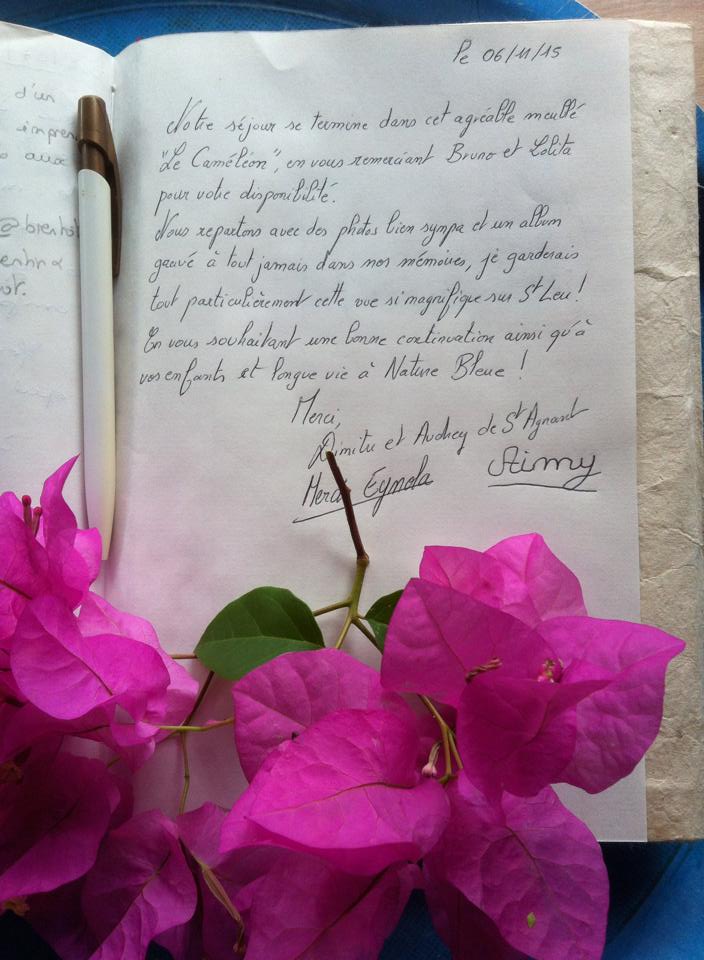 d'un
impren
aux
@brenh
Le 06/11/15
Notre séjour se termine dans cet agréable meublé
"Le Caméléon", en vous remerciant Bruno et Lolita
pour votre disponibilité.
Nous repartons avec des photos bien sympa et un album
gravé à tout jamais dans nos mémoires, je garderais
tout particulièrement cette vue si magnifique sur St Leu !
En vous souhaitant une bonne continuation ainsi qu'à
vos enfants et longue vie à Nature Bleue !
Merci,
Dimitri et Audrey de St Agnant
Merci Eynola
Aimy